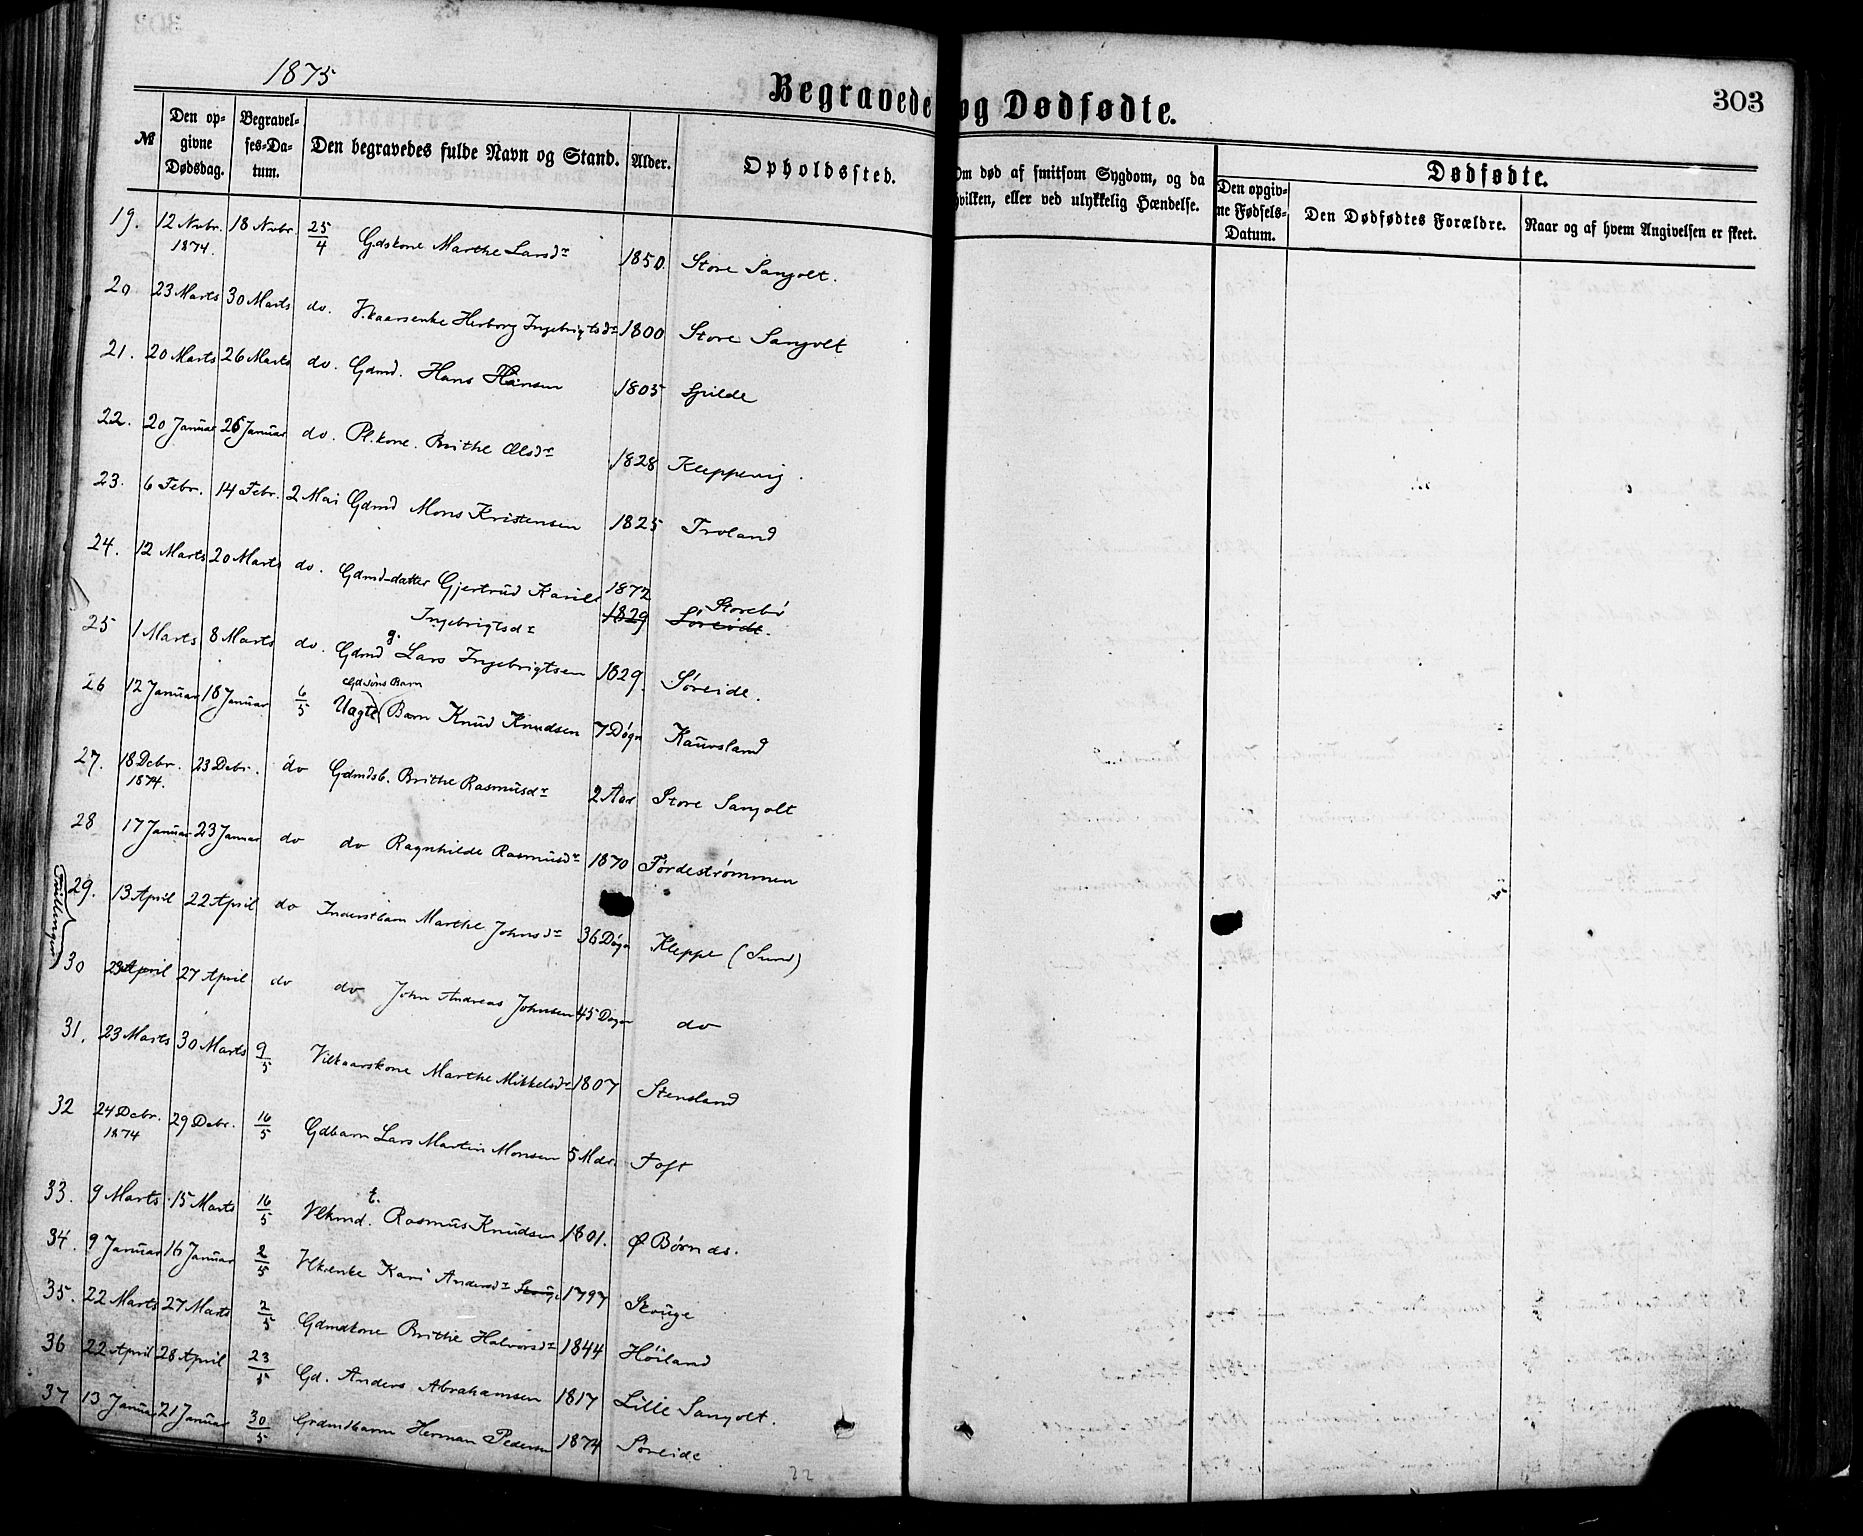 1875
Begravede og Dødfødte.
303
№
Den opgivne Dødsdag.
Begravelses-Datum.
Den begravedes fulde Navn og Stand.
Alder.
Opholdssted.
Om død af smitsom Sygdom, og da hvilken, eller ved ulykkelig Hændelse.
Dødfødte.
Den opgivne Fødsels-Datum.
Den Dødfødtes Forældre.
Naar og af hvem Angivelsen er skeet.
19. 12 Nvbr. 1874. 18 Nvbr 25/4 Gdskone Marthe Larsdr 1850. Store Sangolt.
20 23 Marts 30 Marts do. Vkaarsenke Herborg Ingebrigtsdr 1800 Store Sangolt
21. 20 Marts 26 Marts do. Gdmd. Hans Hansen 1805 Spilde
22. 20 Januar 26 Januar do. Pl.kone. Brithe Olsdr 1828 Kleppevig.
23. 6 Febr. 14 Febr. 2 Mai Gdmd Mons Kristensen 1825 Troland
24. 12 Marts 20 Marts do. Gdmd-datter Gjertrud Karine 1872 Storebø
Ingebrigtsdr 1829 Søreidt.
25 1 Marts 8 Marts do. Gdmd g. Lars Ingebrigtsen 1829. Søreide.
Gdsöns Barn
26 12 Januar 18 Januar 6/5 Uagte Barn Knud Knudsen 7 Døgn Kaursland
27. 18 Debr. 1874. 23 Debr. do Gdmdsb. Brithe Rasmusdr 2 Aar Store Sangolt
28 17 Januar 23 Januar do do Ragnhilde Rasmusdr 1870 Førdestrømmen
Tvillinger
29. 13 April 22 April do Inderstbarn Marthe Johnsdr 36 Døgn Kleppe (Sund)
30 23 April 27 April do do John Andreas Johnsen 45 Døgn do
31. 23 Marts 30 Marts 9/5 Vilkaarskone Marthe Mikkelsdr 1807 Stensland
32 24 Debr. 1874 29 Debr. 16/5 Gdbarn Lars Martin Monsen 5 Mdr. Toft
33. 9 Marts 15 Marts 16/5 Vlkmd. t. Rasmus Knudsen 1801. Ø Børnæs.
34. 9 Januar 16 Januar 2/5 Vlkrenke Kari Andersdr Skouge 1797 Skouge
35. 22 Marts 27 Marts 2/5 Gdmdkone Brithe Halvorsdr 1844 Høiland
36 22 April 28 April 23/5 Gd. Anders Abrahamsen 1817 Lille Sangolt.
37 13 Januar 21 Januar 30/5 Grdmdbarn Herman Pedersen 1874 Søreide
22